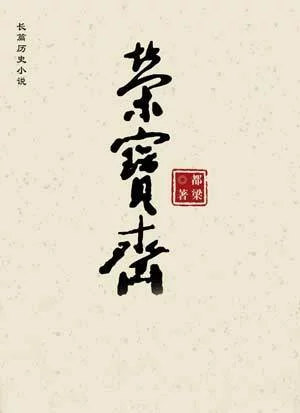 长篇历史小说
榮寳齋
都梁
◎著